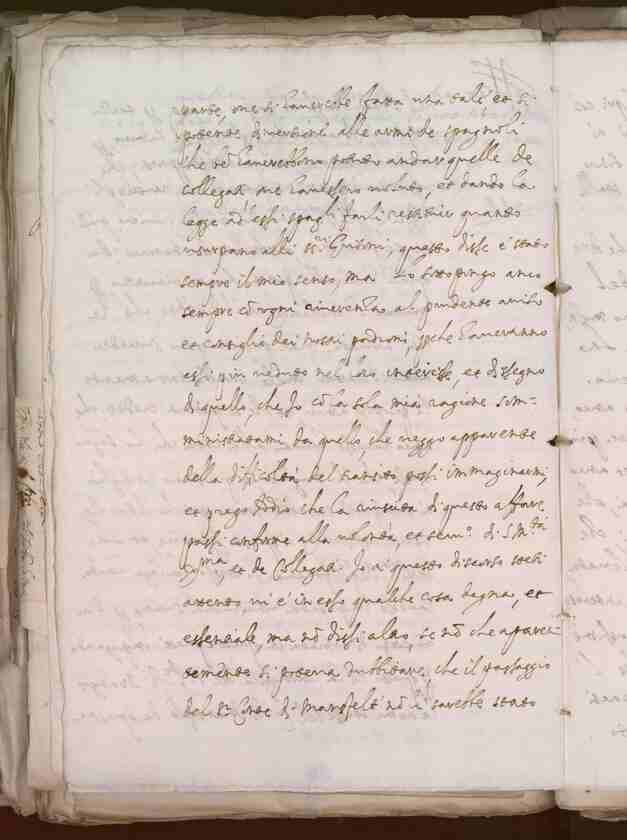 parte, che si haverebbe fatta una tale et si
potente diversione alle armi de spagnoli
che nō haverebbono potuto andar quelle de
collegati ove havessero voluto, et dando la
legge ad essi spagli farli restituir quanto
usurpano alli sri Grisoni, questo disse è stato
sempre il mio senso, ma lo sottopongo anco
sempre cō ogni riverenza al prudente aviso
et consiglio dei nostri padroni, pche haveranno
essi più veduto nel loro interesse, et dissegno
di quello, che Io cō la sola mia ragione som=
ministratami da quello, che veggo apparente
della difficoltà del transito possi immaginarmi,
et prego Iddio che la riuscita di questo affare
possi conforme alla volontà, et servo di S Mtà
Xma, et de Collegati. Io a questo discorso stetti
attento, vi è in esso qualche cosa degna, et
essentiale, ma nō dissi altro, se nō che apparen=
temente si poteva dubbitare, che il passaggio
del Sr Conte di Mansfelt nō li sarebbe stato